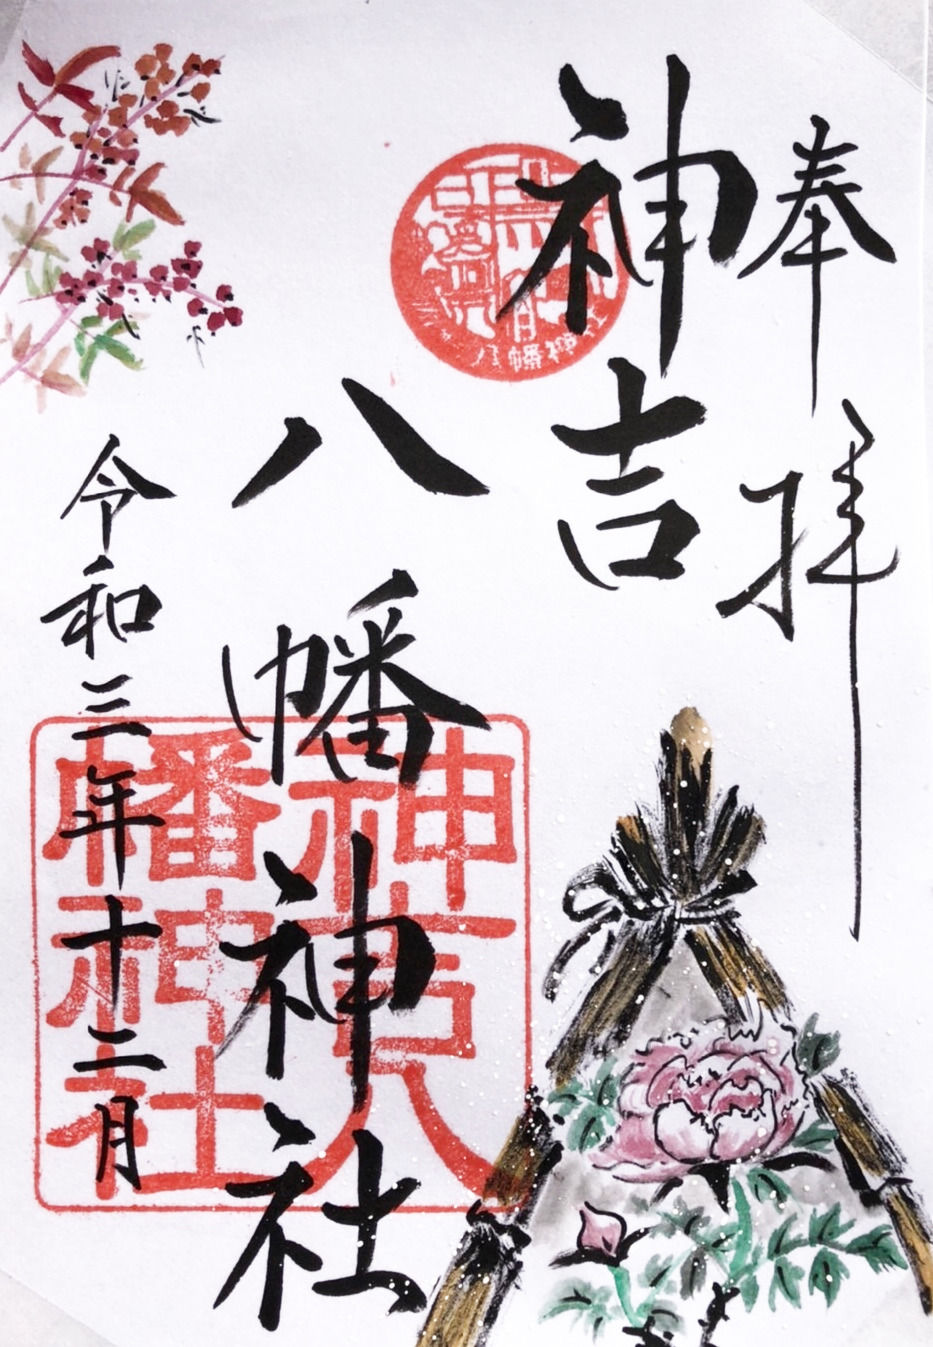 奉拝
神吉
八幡神社
令和三年十二月
八幡神社
神吉八
幡神社